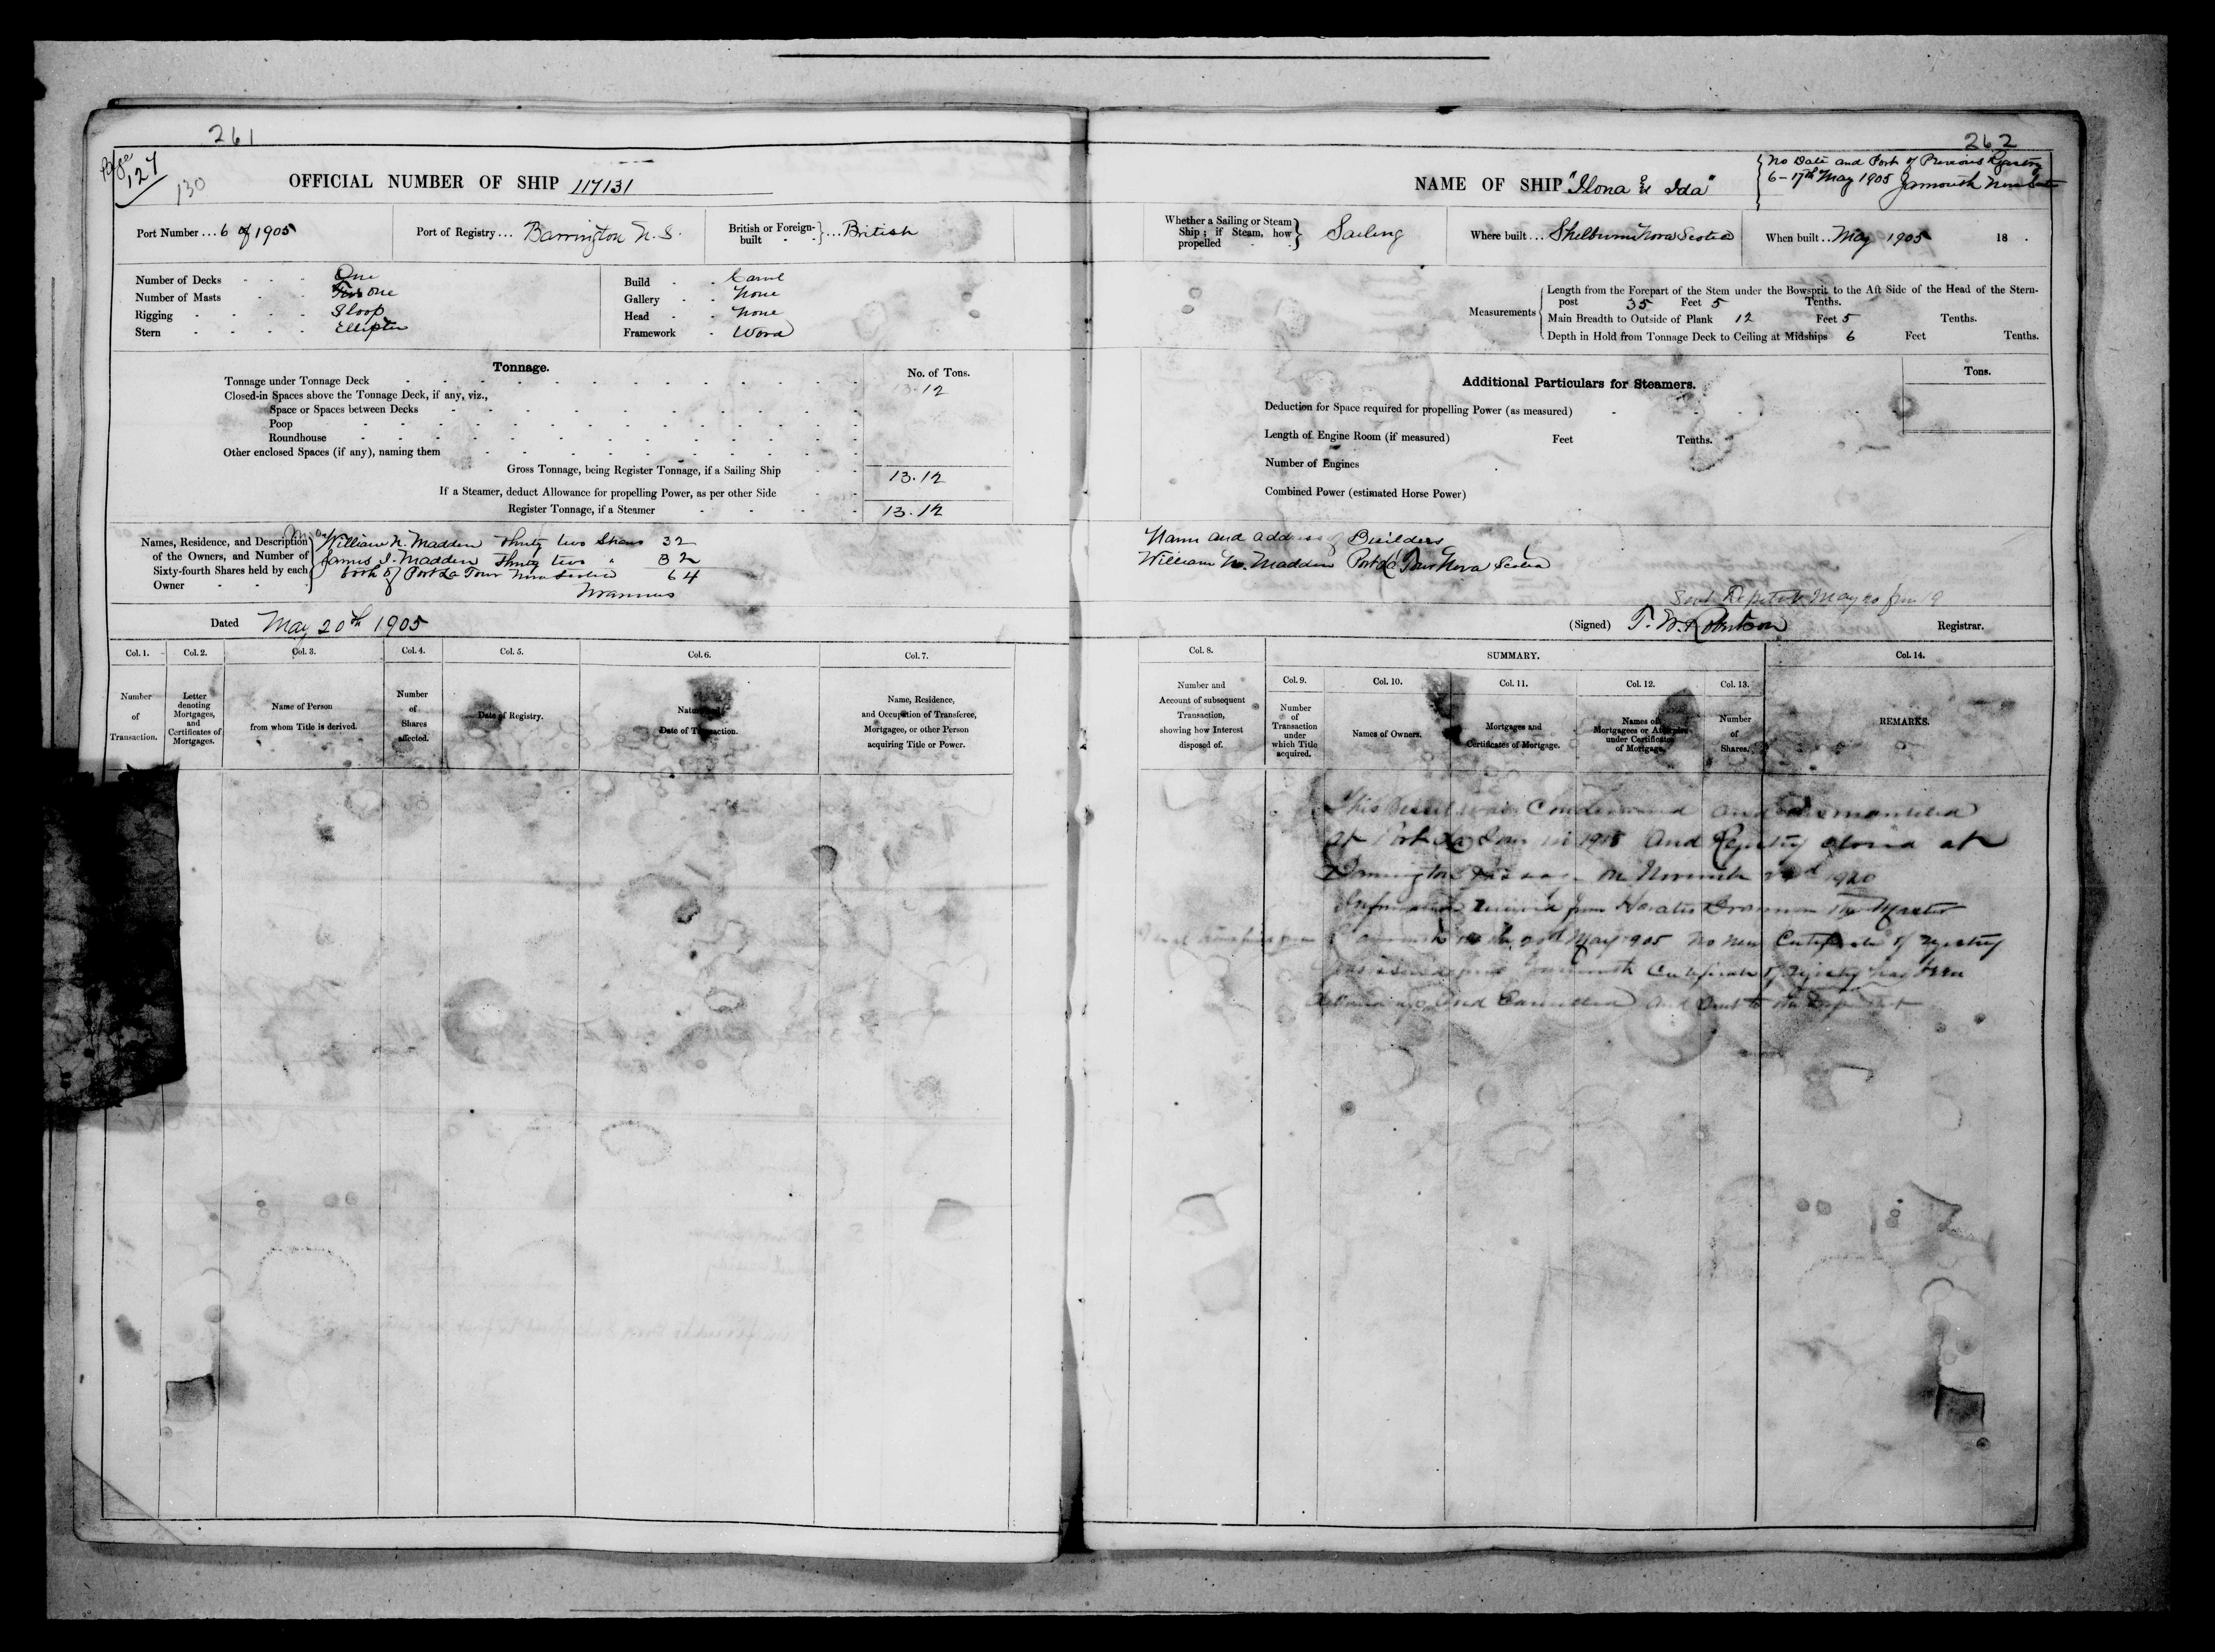 261
262
Page 127
130
OFFICIAL NUMBER OF SHIP 117131
NAME OF SHIP "Ilona & Ida"
No Date and Port of Previous Registry
6 - 17th May 1905 Yarmouth Nova Scotia
Port Number ... 6 of 1905
Port of Registry ... Barrington N.S.
British or Foreign-built } ... British
Whether a Sailing or Steam Ship; if Steam, how propelled } Sailing
Where built ... Shelburne Nova Scotia
When built .. May 1905 18 .
Number of Decks - - - One
Number of Masts - - - one
Rigging - - - - Sloop
Stern - - - - Elliptic
Build - - Carvel
Gallery - - None
Head - - None
Framework - Wood
Measurements
Length from the Forepart of the Stem under the Bowsprit to the Aft Side of the Head of the Stern-
post 35 Feet 5 Tenths.
Main Breadth to Outside of Plank 12 Feet 5 Tenths.
Depth in Hold from Tonnage Deck to Ceiling at Midships 6 Feet Tenths.
Tonnage.
No. of Tons.
Tonnage under Tonnage Deck 13.12
Closed-in Spaces above the Tonnage Deck, if any, viz.,
Space or Spaces between Decks
Poop
Roundhouse
Other enclosed Spaces (if any), naming them
Gross Tonnage, being Register Tonnage, if a Sailing Ship 13.12
If a Steamer, deduct Allowance for propelling Power, as per other Side
Register Tonnage, if a Steamer 13.12
Additional Particulars for Steamers.
Tons.
Deduction for Space required for propelling Power (as measured)
Length of Engine Room (if measured) Feet Tenths.
Number of Engines
Combined Power (estimated Horse Power)
Names, Residence, and Description of the Owners, and Number of Sixty-fourth Shares held by each Owner
William N. Madden Thirty two Shares 32
James I. Madden Thirty two " 32
both of Port La Tour Nova Scotia 64
Name and address of Builders
William N. Madden Port La Tour Nova Scotia
Dated May 20th 1905
(Signed) T. W. Robertson Registrar.
Col. 1.
Number of Transaction.
Col. 2.
Letter denoting Mortgages, and Certificates of Mortgages.
Col. 3.
Name of Person from whom Title is derived.
Col. 4.
Number of Shares affected.
Col. 5.
Date of Registry.
Col. 6.
Nature and Date of Transaction.
Col. 7.
Name, Residence, and Occupation of Transferee, Mortgagee, or other Person acquiring Title or Power.
Col. 8.
Number and Account of subsequent Transaction, showing how Interest disposed of.
SUMMARY.
Col. 9.
Number of Transaction under which Title acquired.
Col. 10.
Names of Owners.
Col. 11.
Mortgages and Certificates of Mortgage.
Col. 12.
Names of Mortgagees or Attornies under Certificates of Mortgage.
Col. 13.
Number of Shares.
Col. 14.
REMARKS.
This Vessel was Condemned and dismantled
at Port La Tour in 1915 And Registry closed at
Barrington on November 1920
Information received from the Master
May 1905 No new Certificate of registry
was issued Yarmouth Certificate of registry has been
and Cancelled and Sent to the Department